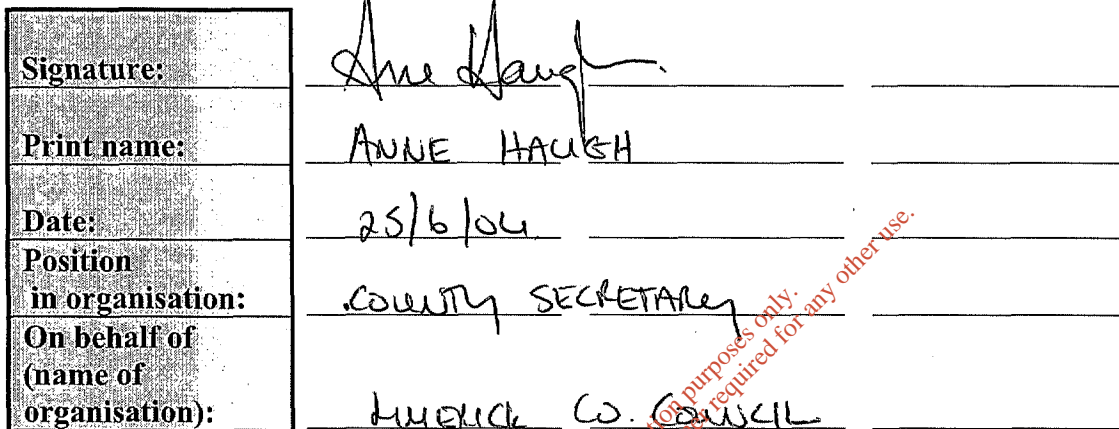 Signature: Anne Haugh
Print name: ANNE HAUGH
Date: 25/6/04
Position
in organisation: COUNTY SECRETARY
On behalf of
(name of
organisation): LIMERICK CO. COUNCIL
purposes only.
required for any other use.